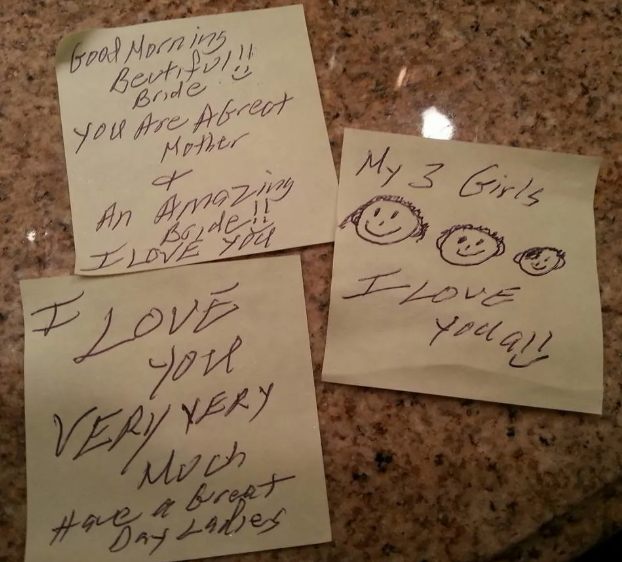 Good Morning
Beutiful!!
Bride
You Are A Great
Mother
+
An Amazing
Bride!!
I LOVE YOU
My 3 Girls
I LOVE
you all
I LOVE
YOU
VERY VERY
Much
Have a Great
Day Ladies